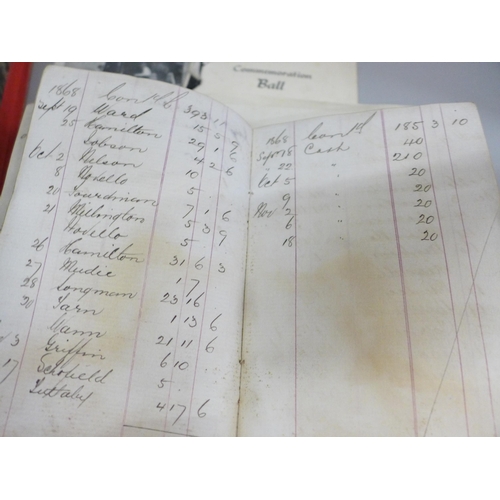 Commemoration
Ball
1868
Sept 19 Ward 393 1
25 Hamilton 15 5 9
Dobson 29 1 6
Oct 2 Nelson 4 2 6
8 Novello 10
20 Boardman 5 .
21 Millington 7 1 6
Novello 5 3 9
26 Hamilton 31 6 3
27 Mudie 1 7
28 Longman 23 16
30 Tarn 1 13 6
3 Mann 21 11 6
Griffin 6 10 .
17 Schofield 5 .
4 17 6
1868 185 3 10
Sept 18 Cash 40
" 22 " 210
Oct 5 20
9 " 20
Nov 2 20
6 " 20
18 " 20